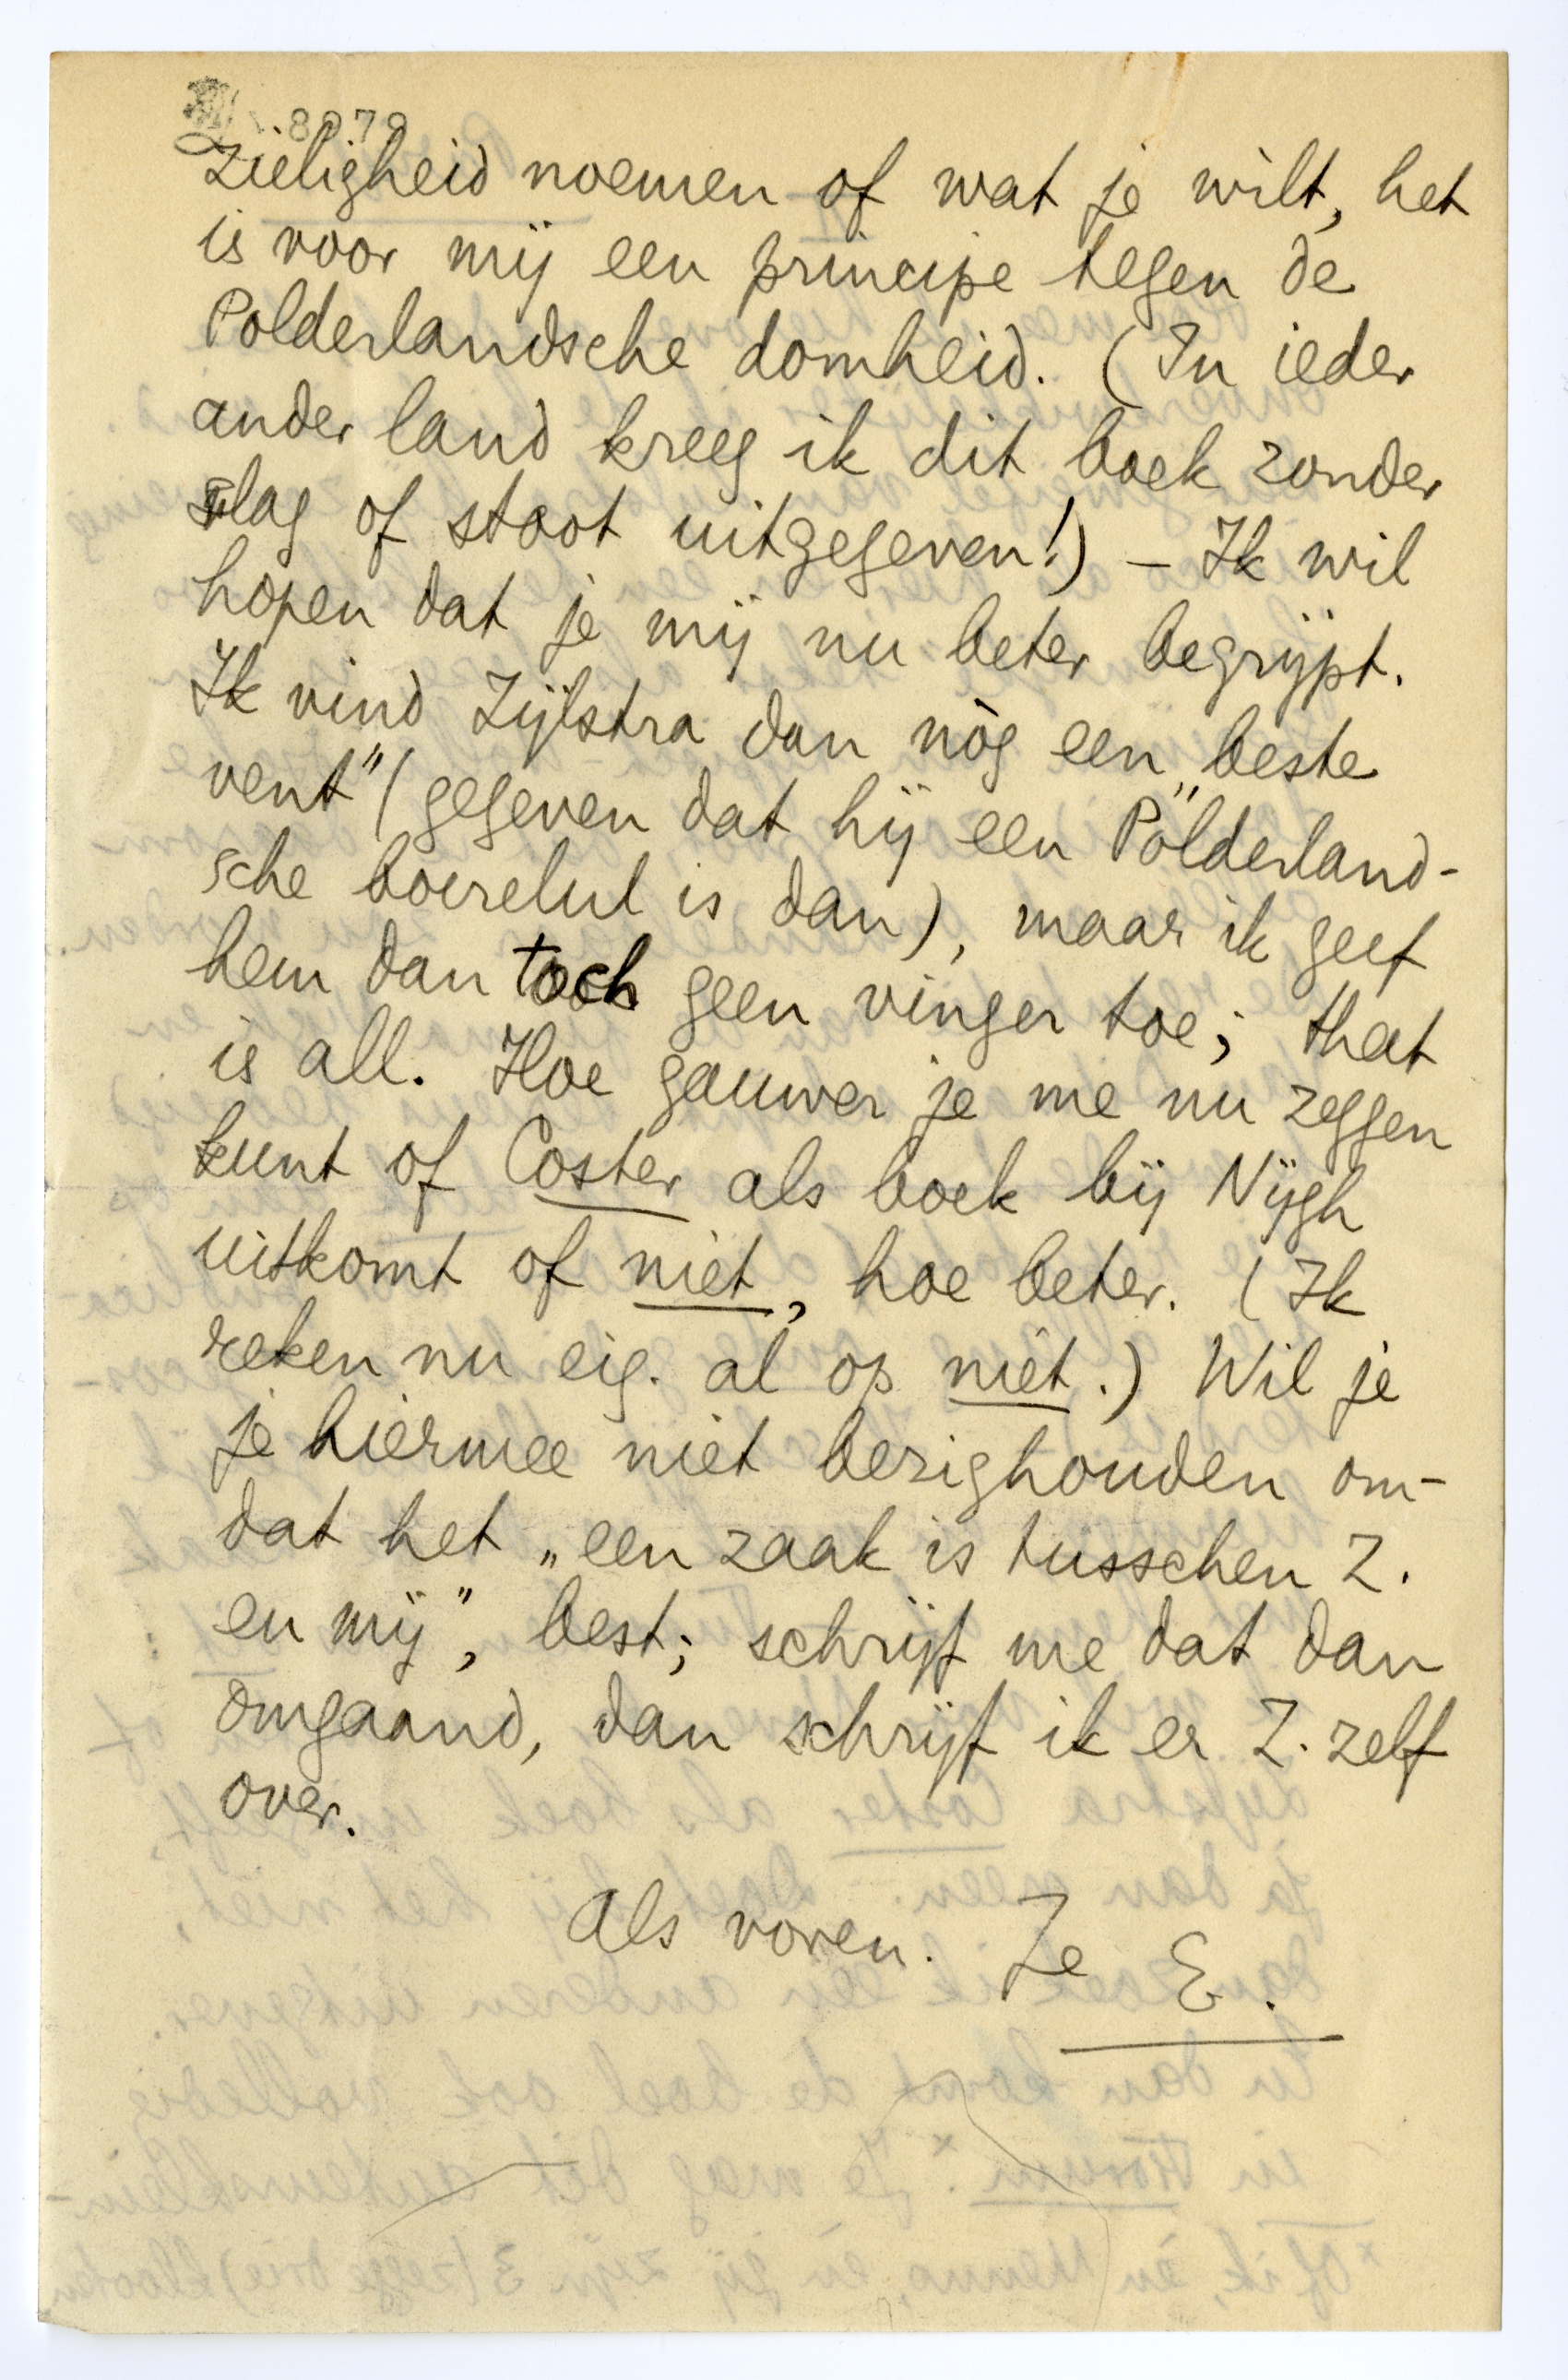 8979
zieligheid noemen of wat je wilt, het
is voor mij een principe tegen de
Polderlandsche domheid. (In ieder
ander land kreeg ik dit boek zonder
slag of stoot uitgegeven!) – Ik wil
hopen dat je mij nu beter begrijpt.
Ik vind Zijlstra dan nòg een „beste
vent” (gegeven dat hij een Polderland-
sche boerelul is dan), maar ik geef
hem dan toch geen vinger toe; that
is all. Hoe gauwer je me nu zeggen
kunt of Coster als boek bij Nijgh
uitkomt of niet, hoe beter. (Ik
reken nu eig. al op niet.) Wil je
je hiermee niet bezighouden om-
dat het „een zaak is tusschen Z.
en mij”, best; schrijf me dat dan
omgaand, dan schrijf ik er Z. zelf
over.
Als voren. Je E.